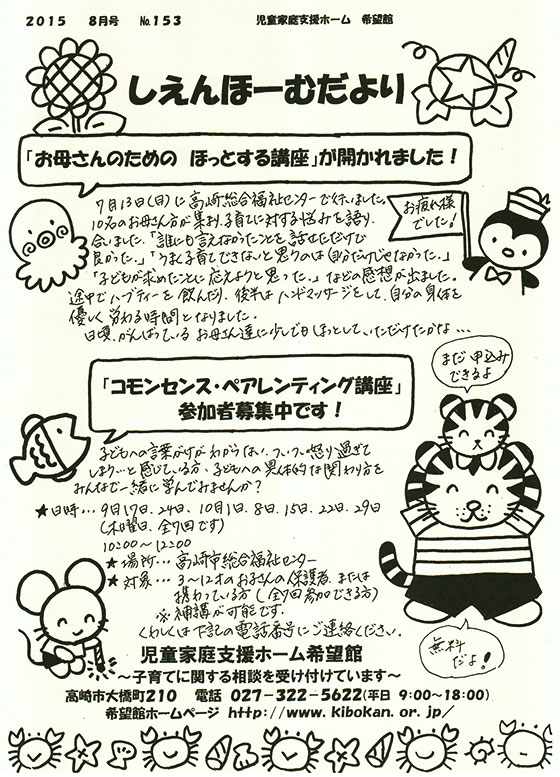 2015 8月号 No.153 児童家庭支援ホーム 希望館
しえんほーむだより
「お母さんのための ほっとする講座」が開かれました！
7月13日(月)に高崎総合福祉センターで行いました。
10名のお母さん方が集まり、子育てに対する悩みを語り
合いました。「誰にも言えなかったことを話せただけで
良かった。」「うまく子育てできないと思うのは自分だけじゃなかった。」
「子どもが求めたことに応えようと思った。」などの感想が出ました。
途中でハーブティーを飲んだり、後半はハンドマッサージをして、自分の身体を
優しく労わる時間となりました。
日頃、がんばっているお母さん達に少しでもほっとして、いただけたかな…
お疲れ様
でした!
「コモンセンス・ペアレンティング講座」
参加者募集中です！
まだ申込み
できるよ
子どもへの言葉がけがわからない、ついつい怒り過ぎて
しまう…と感じている方、子どもへの具体的な関わり方を
みんなで一緒に学んでみませんか？
★日時…9月17日、24日、10月1日、8日、15日、22日、29日
(木曜日、全7回です)
10:00～12:00
★場所…高崎市総合福祉センター
★対象…3～12才のお子さんの保護者、または
携わっている方(全7回参加できる方)
※補講が可能です。
くわしくは下記の電話番号にご連絡ください。
無料
だよ!
児童家庭支援ホーム希望館
～子育てに関する相談を受け付けています～
高崎市大橋町210 電話 027-322-5622(平日 9:00～18:00)
希望館ホームページ http://www.kibokan.or.jp/